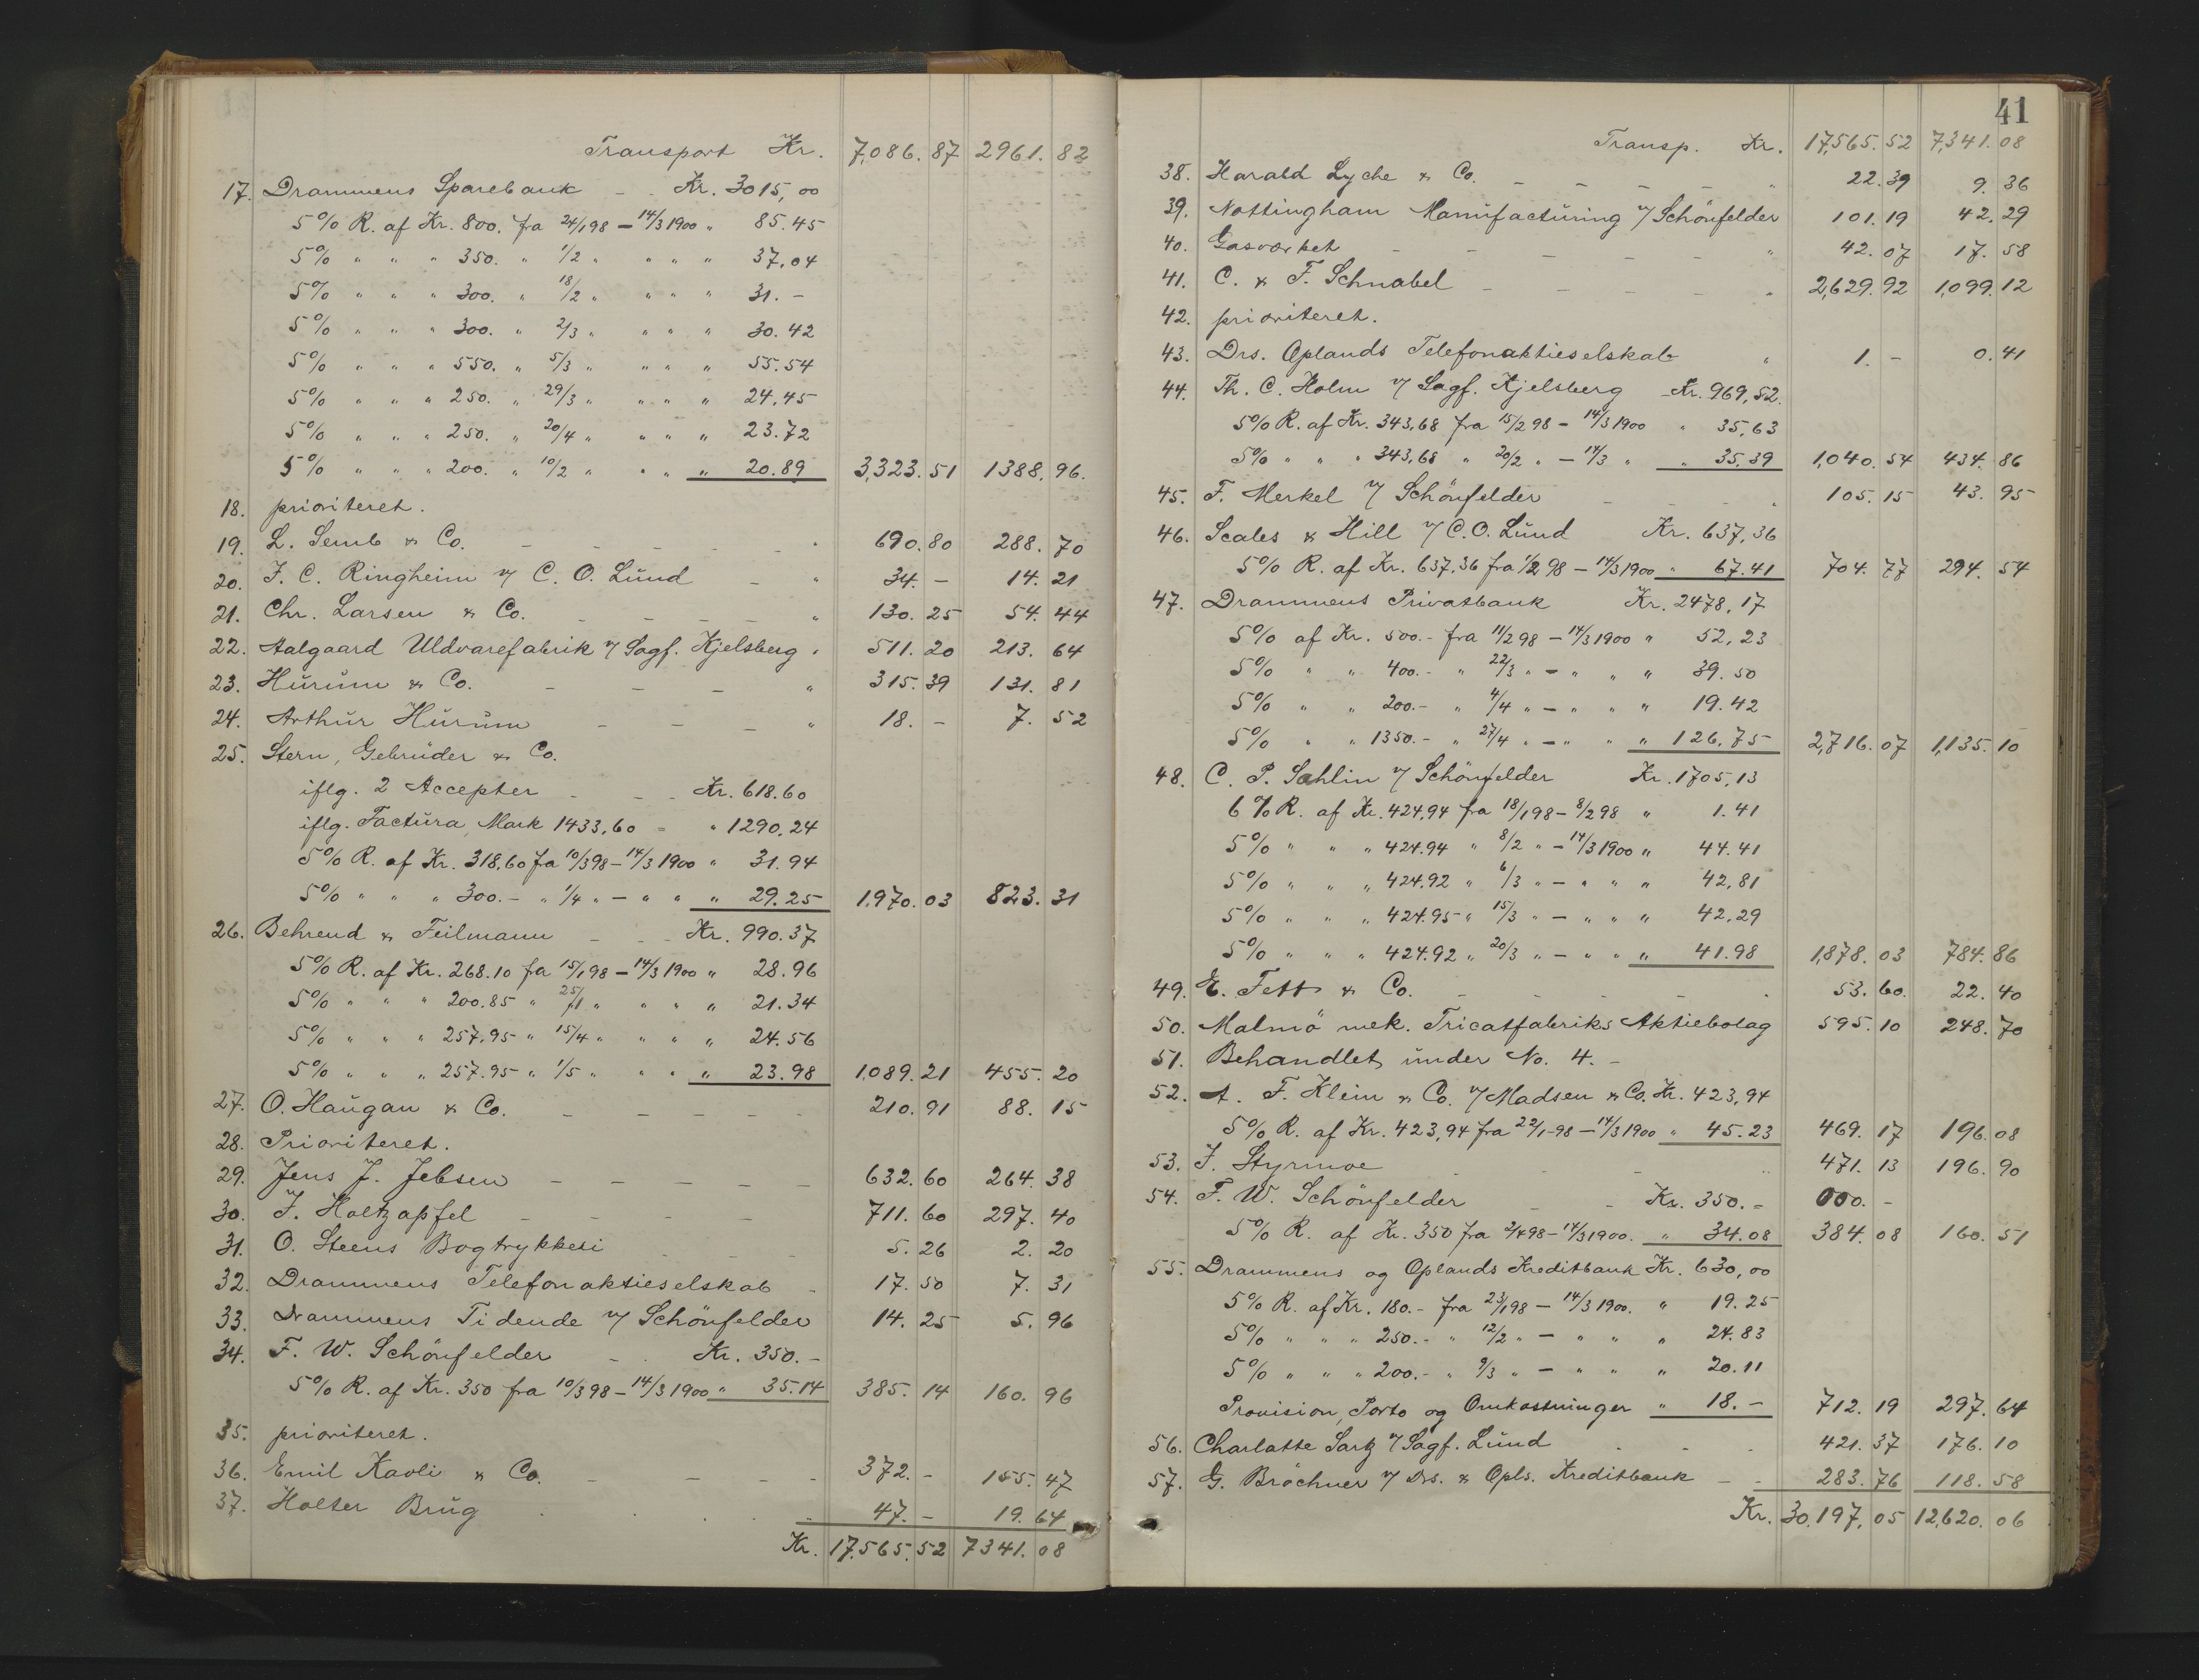 Transport Kr. 7,086. 87 2961. 82
17. Drammens Sparebank - . Kr. 3015,00
5% R. af Kr. 800. fra 24/1 98 - 14/3 1900 " 85.45
5% " " " 350. " 1/2 " " " " 37,04
5% " " " 300. " 18/2 " " " " 31. -
5% " " " 300. " 2/3 " " " " 30.42
5% " " " 550. " 5/3 " " " " 55.54
5% " " " 250. " 29/3 " " " " 24.45
5% " " " 250. " 20/4 " " " " 23.72
5% " " " 200. " 10/2 " " " " 20.89 3,323. 51 1388. 96.
18. prioriteret.
19. L. Semb & Co. - - - - - " 690. 80 288. 70
20. J. C. Ringheim v/ C. O. Lund - " 34. - 14. 21
21. Chr. Larsen & Co. - - - - " 130. 25 54. 44
22. Aalgaard Uldvarefabrik v/ Sagf. Kjelsberg " 511. 20 213. 64
23. Hurum & Co. - - - " 315. 39 131. 81
24. Arthur Hurum - - - " 18. - 7. 52
25. Stern, Gebrüder & Co.
iflg. 2 Accepter - - - Kr. 618.60
iflg. Factura, Mark 1433,60 = " 1290.24
5% R. af Kr. 318,60 fra 10/3 98 - 14/3 1900 " 31.94
5% " " " 300.- " 1/4 " - " " " 29.25 1,970. 03 823. 31
26. Behrend & Feilmann - - - Kr. 990.37
5% R. af Kr. 268.10 fra 15/1 98 - 14/3 1900 " 28.96
5% " " " 200.85 " 25/1 " " " " 21.34
5% " " " 257.95 " 15/4 " " " " 24.56
5% " " " 257.95 " 1/5 " " " " 23.98 1,089. 21 455. 20
27. O. Haugan & Co. - - - - - 210. 91 88. 15
28. Prioriteret.
29. Jens J. Jebsen - - - - - 632. 60 264. 38
30. J. Holtzapfel - - - - 711. 60 297. 40
31. O. Steens Bogtrykkeri - - - 5. 26 2. 20
32. Drammens Telefonaktieselskab - 17. 50 7. 31
33. Drammens Tidende v/ Schönfelder 14. 25 5. 96
34. F. W. Schönfelder - - Kr. 350. -
5% R. af Kr. 350 fra 10/3 98 - 14/3 1900 " 35.14 385. 14 160. 96
35. prioriteret.
36. Emil Kavli & Co. - - - - 372. - 155. 47
37. Holter Brug . . . . . 47. - 19. 64
Kr. 17,565. 52 7341. 08
41
Transp. Kr. 17,565. 52 7,341. 08
38. Harald Lyche & Co. - - - - " 22. 39 9. 36
39. Nottingham Manufacturing v/ Schönfelder 101. 19 42. 29
40. Gasværket - - - - - " 42. 07 17. 58
41. C. & F. Schnabel - - - - " 2,629. 92 1,099. 12
42. prioriteret.
43. Drs. Oplands Telefonaktieselskab " 1. - 0. 41
44. Th. C. Holm v/ Sagf. Kjelsberg - Kr. 969,52.
5% R. af Kr. 343,68 fra 15/2 98 - 14/3 1900 " 35,63
5% " " " 343,68 " 20/2 " - 14/3 " " 35,39 1,040. 54 434. 86
45. F. Merkel v/ Schönfelder - - . 105. 15 43. 95
46. Scales & Hill v/ C. O. Lund Kr. 637,36
5% R. af Kr. 637.36 fra 1/2 98 - 14/3 1900 " 67.41 704. 77 294. 54
47. Drammens Privatbank Kr. 2478,17
5% af Kr. 500.- fra 11/2 98 - 14/3 1900 " 52,23
5% " " 400.- " 22/3 " - " " " 39.50
5% " " 200.- " 4/4 " - " " " 19.42
5% " " 1350.- " 27/4 " - " " " 126.75 2,716. 07 1,135. 10
48. C. P. Sahlin v/ Schönfelder Kr. 1705,13
6% R. af Kr. 424.94 fra 18/1 98 - 8/2 98 " 1.41
5% " " " 424.94 " 8/2 " - 14/3 1900 " 44.41
5% " " " 424.92 " 6/3 " - " " " 42,81
5% " " " 424.95 " 15/3 " - " " " 42,29
5% " " " 424.92 " 20/3 " - " " " 41.98 1,878. 03 784. 86
49. E. Fett & Co. - - - - . 53. 60. 22. 40
50. Malmö mek. Tricotfabriks Aktiebolag 595. 10 248. 70
51. Behandlet under No. 4. -
52. A. F. Klein & Co. v/ Madsen & Co. Kr. 423,94
5% R. af Kr. 423,94 fra 22/1-98 - 14/3 1900 " 45.23 469. 17 196. 08
53. J. Styrmoe - - - " 471. 13 196. 90
54. F. W. Schönfelder - - Kr. 350. = 000. -
5% R. af Kr. 350 fra 2/4 98 - 14/3 1900. " 34.08 384. 08 160. 51
55. Drammens og Oplands Kreditbank Kr. 630,00
5% R. af Kr. 180.- fra 23/1 98 - 14/3 1900. " 19.25
5% " " " 250.- " 12/2 " - " " " 24.83
5% " " " 200.- " 9/3 " - " " " 20.11
Provision, Porto og Omkostninger " 18. - 712. 19 297. 64
56. Charlotte Sartz v/ Sagf. Lund . - - 421. 37 176. 10
57. G. Bröchner v/ Drs. & Opls. Kreditbank - - 283. 76 118. 58
Kr. 30,197. 05 12,620. 06